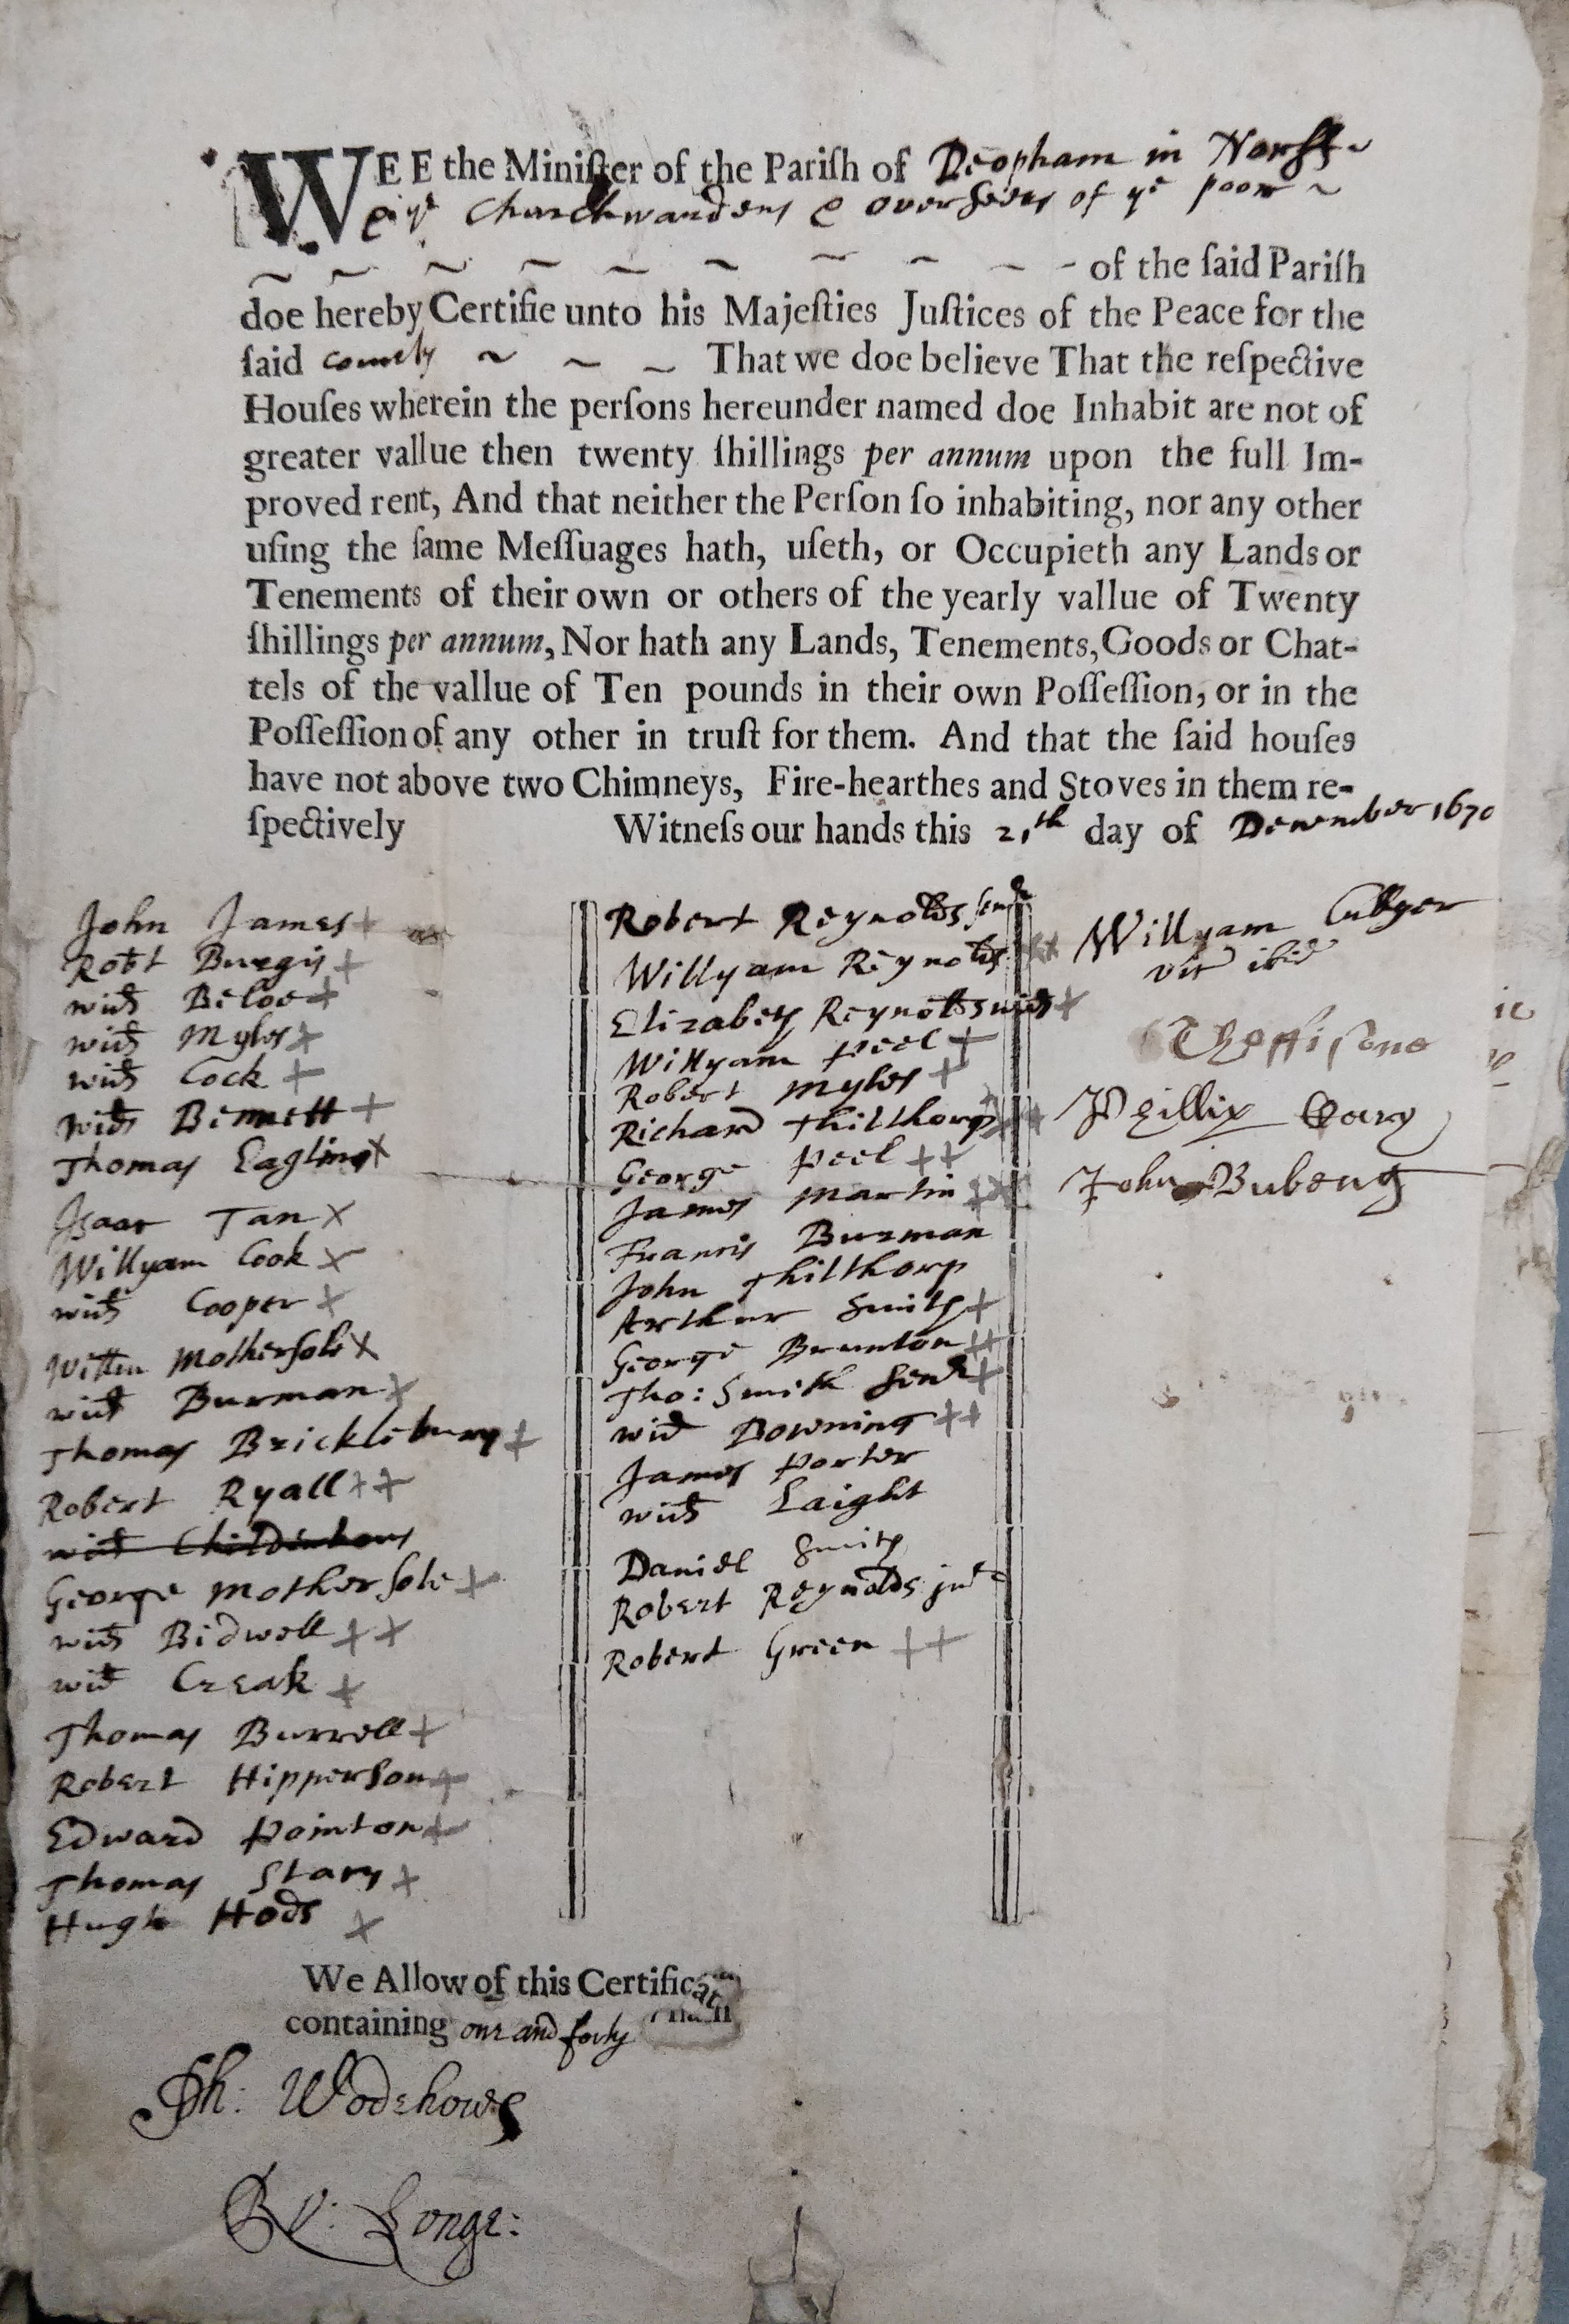 WEE the Miniſter of the Pariſh of Deopham in Norff
& yᵉ Churchwardens & overseers of yᵉ poor
of the ſaid Pariſh
doe hereby Certifie unto his Majeſties Juſtices of the Peace for the
ſaid county That we doe believe That the reſpective
Houſes wherein the perſons hereunder named doe Inhabit are not of
greater vallue then twenty ſhillings per annum upon the full Im-
proved rent, And that neither the Perſon ſo inhabiting, nor any other
uſing the ſame Meſſuages hath, uſeth, or Occupieth any Lands or
Tenements of their own or others of the yearly vallue of Twenty
ſhillings per annum, Nor hath any Lands, Tenements, Goods or Chat-
tels of the vallue of Ten pounds in their own Poſſeſſion, or in the
Poſſeſſion of any other in truſt for them. And that the ſaid houſes
have not above two Chimneys, Fire-hearthes and Stoves in them re-
ſpectively Witneſs our hands this 21th day of December 1670
John James +
Robt Burgis +
wid Beloe +
wid Myles +
wid Cock +
wid Bennett +
Thomas Eagling x
Isaac Tan x
Willyam Cook x
wid Cooper x
Mothersole x
wid Burman x
Thomas Brickleburry +
Robert Ryall ++
wid
George Mothersole +
wid Bidwell ++
wid Creak +
Thomas Burrell +
Robert Hipperson +
Edward Pointon +
Thomas Stary +
Hugh Hods x
Robert Reynolds senr
Willyam Reynolds
Elizabeth Reynolds wid +
Willyam Peel +
Robert Myles +
Richard Thilthorp
George Peel ++
James Martin
Francis Burman
John Thilthorp
Arthur Smith +
George Brunton ++
Tho: Smith Senr +
wid Downing ++
James Porter
wid Laight
Daniel Smith
Robert Reynolds junr
Robert Green ++
Willyam
Phillix Cary
John Bubeng
We Allow of this Certificat
containing one and forty
Ph: Wodehowse
Longe: